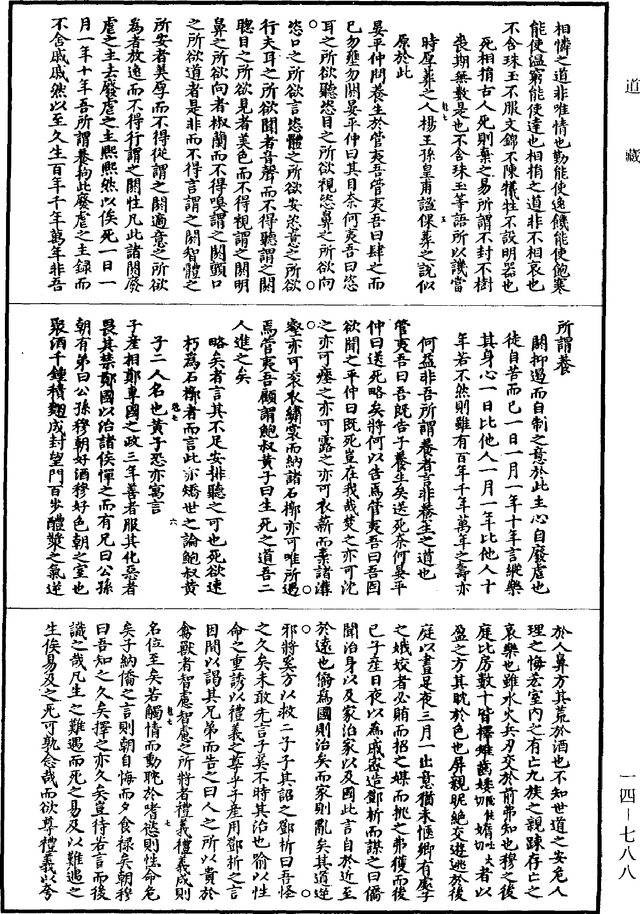 道藏
相憐之道非唯情也勤能使逸饑能使飽寒
能使温窮能使達也相捐之道非不相哀也
不含珠玉不服文錦不陳犧牲不設明器也
死相捐古人死則棄之易所謂不封不樹
喪期無數是也不含珠玉等語所以譏當
時厚葬之人楊王孫皇甫謐倮葬之說似
原於此
晏平仲問養生於管夷吾管夷吾曰肆之而
已勿壅勿閼晏平仲曰其目奈何夷吾曰恣
耳之所欲聽恣目之所欲視恣鼻之所欲向
恣口之所欲言恣體之所欲安恣意之所欲
行夫耳之所欲聞者音聲而不得聽謂之閼
聰目之所欲見者美色而不得視謂之閼明
鼻之所欲向者椒蘭而不得嗅謂之閼顫口
之所欲道者是非而不得言謂之閼智體之
所欲安者美厚而不得從謂之閼適意之所欲
為者放逸而不得行謂之閼性凡此諸閼廢
虐之主去廢虐之主熙熙然以俟死一日一
月一年十年吾所謂養拘此廢虐之主録而
不舍戚戚然以至久生百年千年萬年非吾
所謂養
閼抑遏而自制之意於此主心自廢虐也
徒自苦而已一日一月一年十年言縱樂
其身心一日比他人一月一年比他人十
年若不然則雖有百年千年萬年之壽亦
何益非吾所謂養者言非養生之道也
管夷吾曰吾既告子養生矣送死奈何晏平
仲曰送死略矣將何以告焉管夷吾曰吾固
欲聞之平仲曰既死豈在我哉焚之亦可沈
之亦可瘞之亦可露之亦可衣薪而棄諸溝
壑亦可衮衣繡裳而納諸石槨亦可唯所遇
焉管夷吾顧謂鮑叔黃子曰生死之道吾二
人進之矣
略矣者言其不足安排聽之可也死欲速
朽為石槨者而言此亦矯世之論鮑叔黃
子二人名也黃子恐亦寓言
子產相鄭專國之政三年善者服其化惡者
畏其禁鄭國以治諸侯憚之而有兄曰公孫
朝有弟曰公孫穆朝好酒穆好色朝之室也
聚酒千鍾積麴成封望門百步醴漿之氣逆
於人鼻方其荒於酒也不知世道之安危人
理之悔吝室內之有亡九族之親踈存亡之
哀樂也雖水火兵刃交於前弗知也穆之後
庭比房數十皆擇稚齒婑媠者以
盈之方其耽於色也屏親昵絶交遊逃於後
庭以晝足夜三月一出意猶未愜鄉有處子
之娥姣者必賄而招之媒而挑之弗獲而後
已子產日夜以為戚密造鄧析而謀之曰僑
聞治身以及家治家以及國此言自於近至
於遠也僑為國則治矣而家則亂矣其道逆
邪將奚方以救二子子其詔之鄧析曰吾怪
之久矣未敢先言子奚不時其治也喻以性
命之重誘以禮義之尊乎子產用鄧析之言
因間以謁其兄弟而告之曰人之所以貴於
禽獸者智慮智慮之所將者禮義禮義成則
名位至矣若觸情而動耽於嗜慾則性命危
矣子納僑之言則朝自悔而夕食禄矣朝穆
曰吾知之久矣擇之亦久矣豈待若言而後
識之哉凡生之難遇而死之易及以難遇之
生俟易及之死可孰念哉而欲尊禮義以夸
一四-七八八